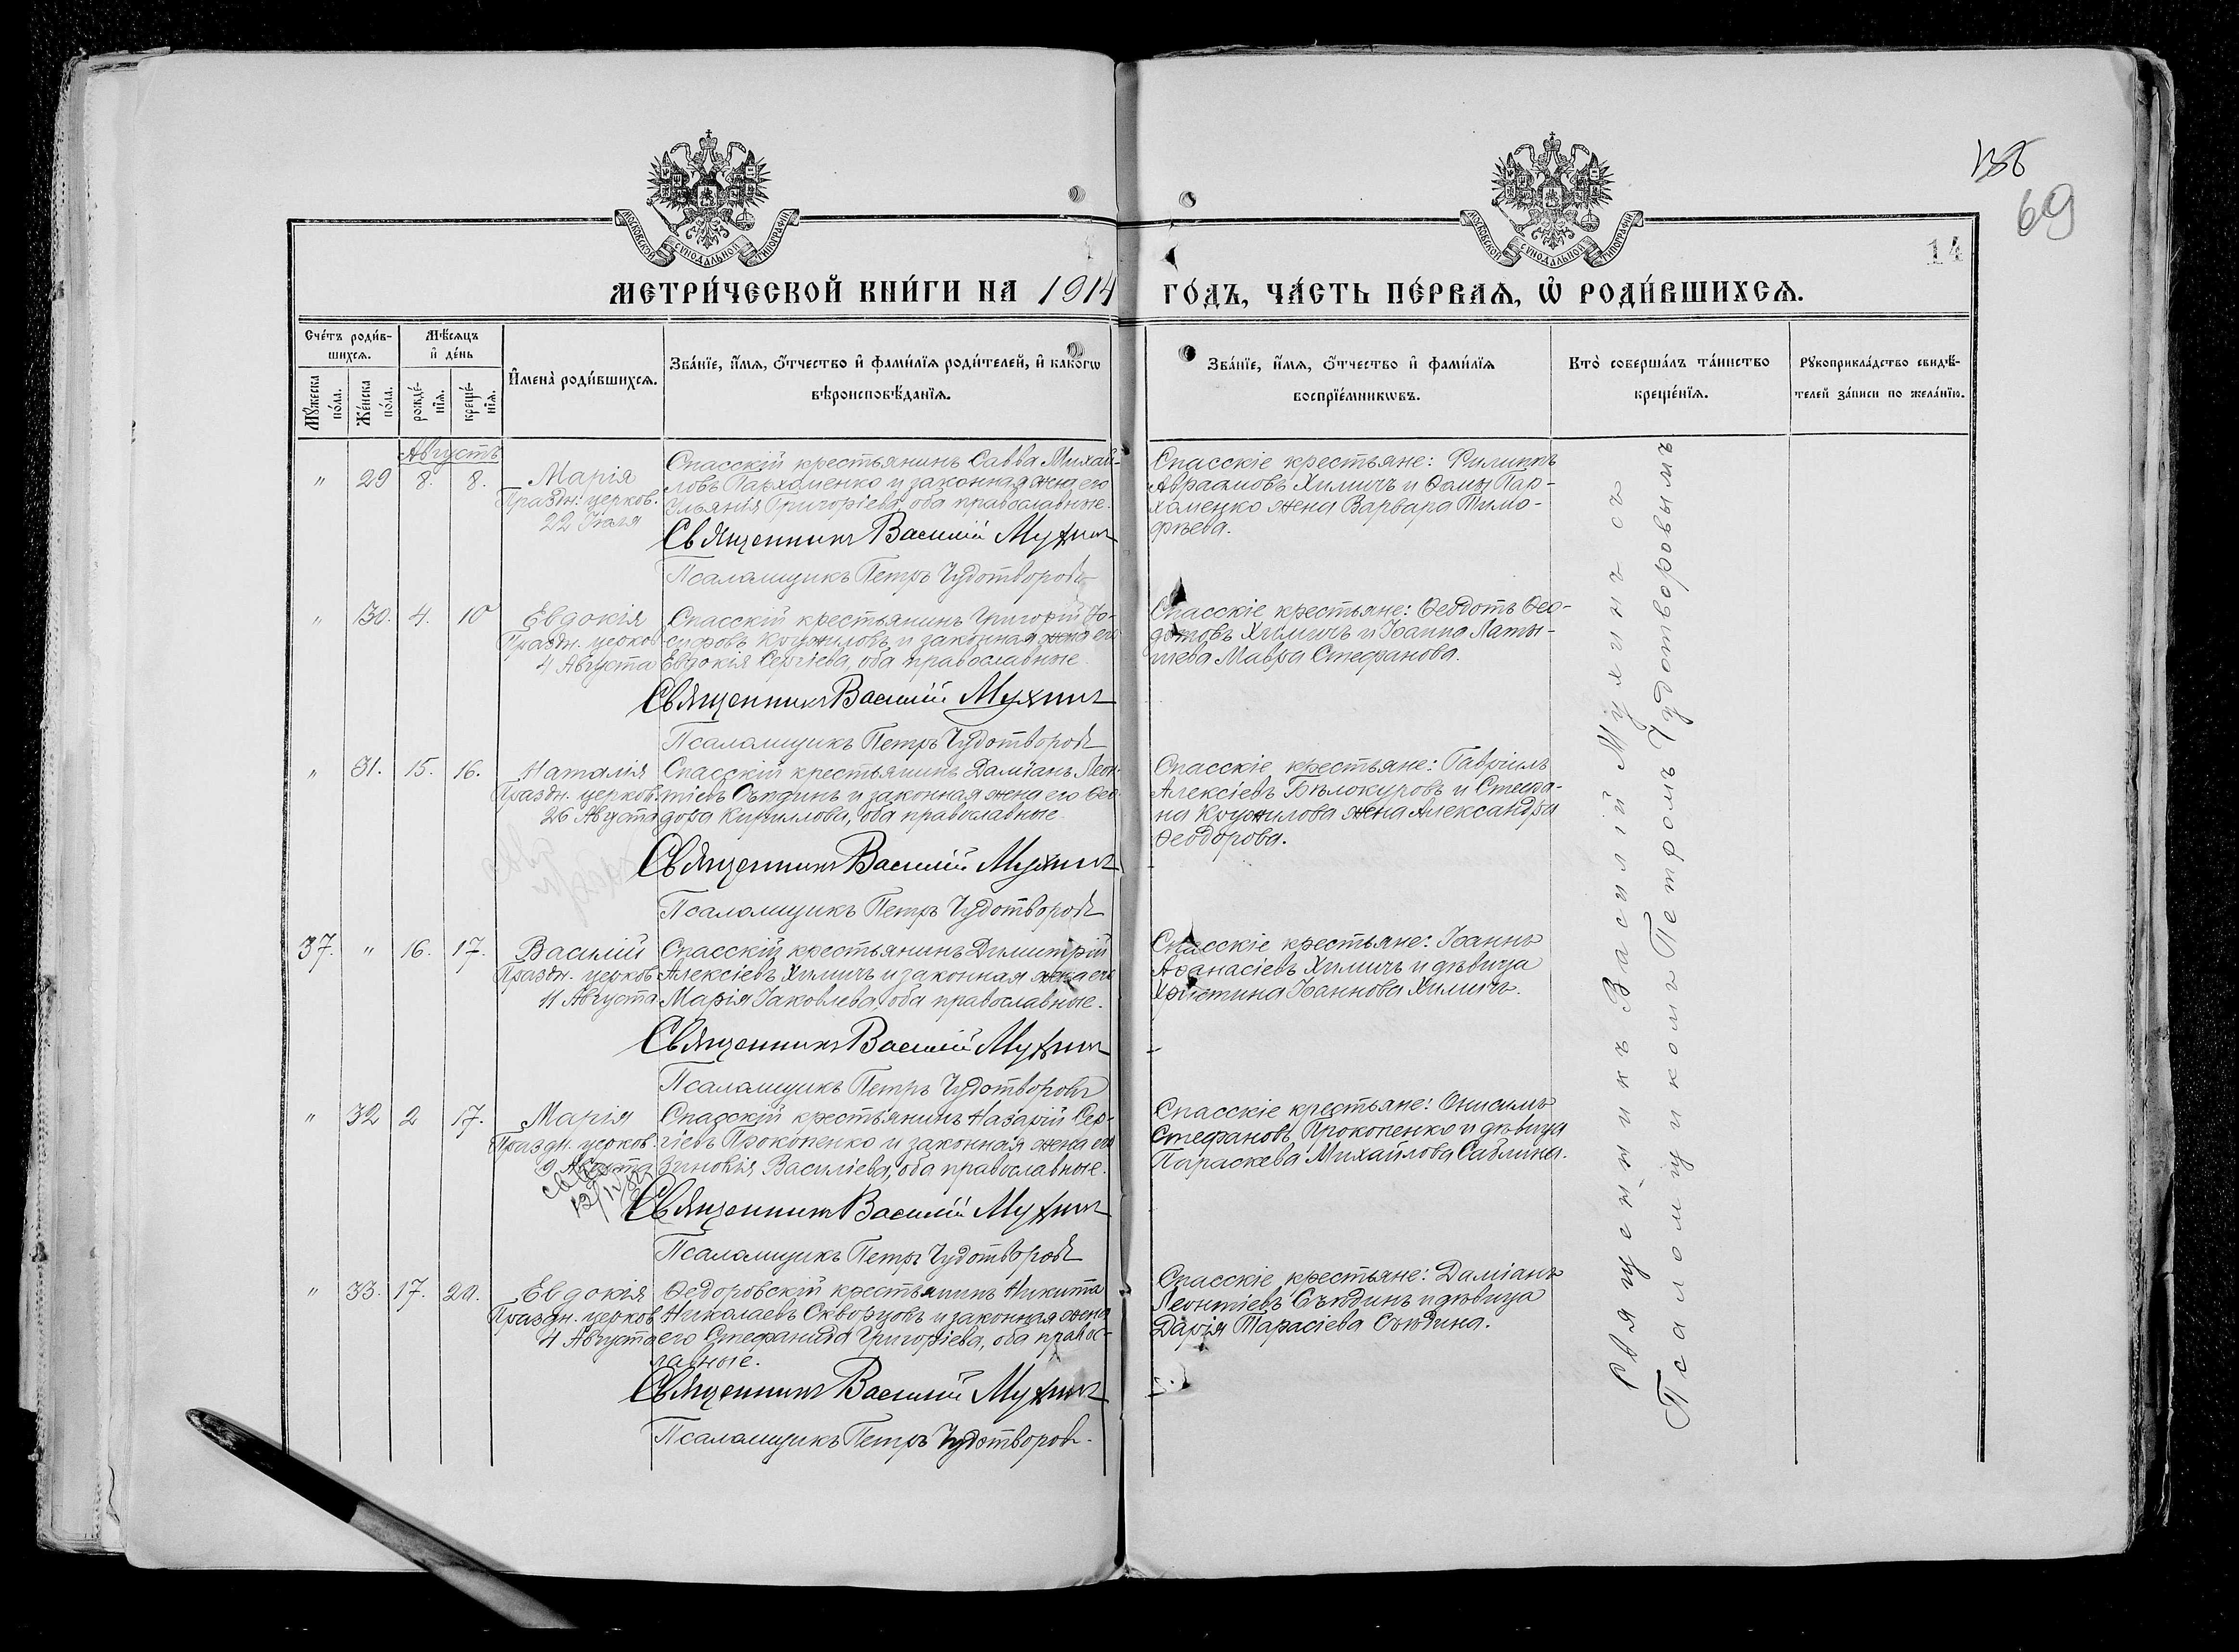 138
69
14
МОСКОВСКОЙ СѴНОДАЛЬНОЙ ТИПОГРАФІИ
МОСКОВСКОЙ СѴНОДАЛЬНОЙ ТИПОГРАФІИ
МЕТРИ́ЧЕСКОЙ КНИ́ГИ НА 1914 ГО́ДЪ, ЧА́СТЬ ПЕ́РВАѦ, Ѡ҆ РОДИ́ВШИХСѦ.
Сче́тъ роди́в-
шихсѧ.
Мѣ́сѧцъ
и҆ де́нь
Мꙋ́жеска
по́ла.
Же́нска
по́ла.
рожде́-
нїѧ.
креще́-
нїѧ.
И҆мена̀ роди́вшихсѧ.
Зва́нїе, и҆́мѧ, ѻ҆́тчество и҆ фами́лїѧ роди́телей, и҆ како́гѡ
вѣроисповѣ́данїѧ.
Зва́нїе, и҆́мѧ, ѻ҆́тчество и҆ фами́лїѧ
воспрїе́мникѡвъ.
Кто̀ соверша́лъ та́инство
креще́нїѧ.
Рꙋкоприкла́дство свидѣ́-
телей за́писи по жела́нїю.
Августъ
" 29 8. 8. Марія
Праздн: церков.
22 Іюля
Спасскій крестьянинъ Савва Михай-
ловъ Пархоменко и законная жена его
Григоріева, оба православные.
Священникъ Василій Мухинъ
Псаломщикъ Петръ Чудотворовъ
Спасскіе крестьяне: Филиппъ
Авраамовъ Химичъ и Ѳомы Пар-
хоменко жена Варвара Тимо-
фѣева.
" 30. 4. 10 Евдокія
Праздн. церков
4 Августа
Спасскій крестьянинъ Григорій Іо-
сифовъ Кружиловъ и законная жена его
Евдокія Сергіева, оба православные.
Священникъ Василій Мухинъ
Псаломщикъ Петръ Чудотворовъ
Спасскіе крестьяне: Ѳеодотъ Ѳео-
дотовъ Химичъ и Іоанна Латы-
шева Мавра Стефанова.
" 31. 15. 16. Наталія
Праздн. церков.
26 Августа
Спасскій крестьянинъ Даміанъ Леон-
тіевъ Съѣдинъ и законная жена его Ѳео-
дора Кириллова, оба православные.
Священникъ Василій Мухинъ
Псаломщикъ Петръ Чудотворовъ
Спасскіе крестьяне: Гавріилъ
Алексіевъ Бѣлокуровъ и Стефа-
на Кружилова жена Александра
Ѳеодорова.
37. " 16. 17. Василій
Праздн. церков
11 Августа
Спасскій крестьянинъ Димитрій
Алексіевъ Химичъ и законная жена его
Марія Іаковлева, оба православные.
Священникъ Василій Мухинъ
Псаломщикъ Петръ Чудотворовъ
Спасскіе крестьяне: Іоаннъ
Аѳанасіевъ Химичъ и дѣвица
Христина Іоаннова Химичъ.
" 32 2 17. Марія
Праздн. церков.
9 Августа
Спасскій крестьянинъ Назарій Сер-
гіевъ Прокопенко и законная жена его
Зиновія Василіева, оба православные.
Священникъ Василій Мухинъ
Псаломщикъ Петръ Чудотворовъ
Спасскіе крестьяне: Онисимъ
Стефановъ Прокопенко и дѣвица
Параскева Михайлова Саблина.
" 33. 17. 20. Евдокія
Праздн. церков
4 Августа
Ѳедоровскій крестьянинъ Никита
Николаевъ Скворцовъ и законная жена
его Стефанида Григоріева, оба правос-
лавные.
Священникъ Василій Мухинъ
Псаломщикъ Петръ Чудотворовъ.
Спасскіе крестьяне: Даміанъ
Леонтіевъ Съѣдинъ и дѣвица
Дарія Тарасіева Съѣдина.
Священникъ Василій Мухинъ съ
Псаломщикомъ Петромъ Чудотворовымъ